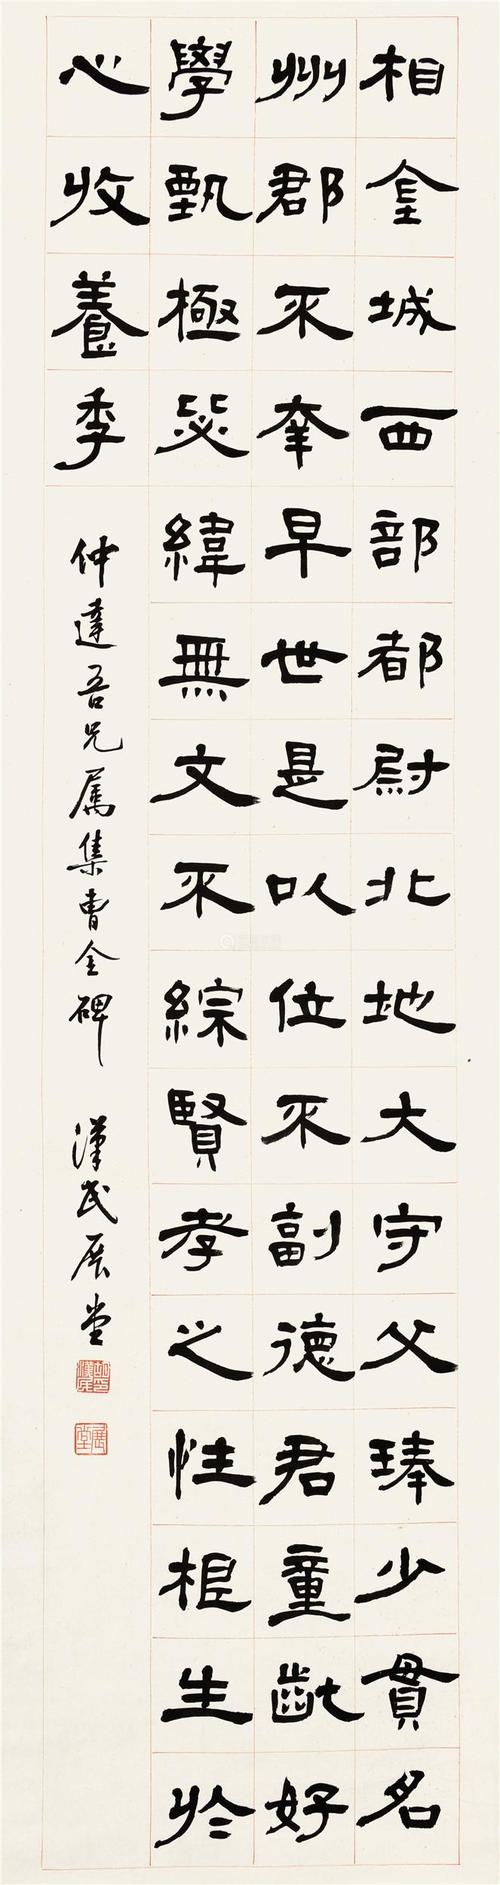 相金城西部都尉北地大守父琫少貫名
州郡不幸早世是以位不副德君童齔好
學甄極毖緯無文不綜賢孝之性根生於
心收養季
仲達吾兄属集曹全碑 漢民展堂
展堂